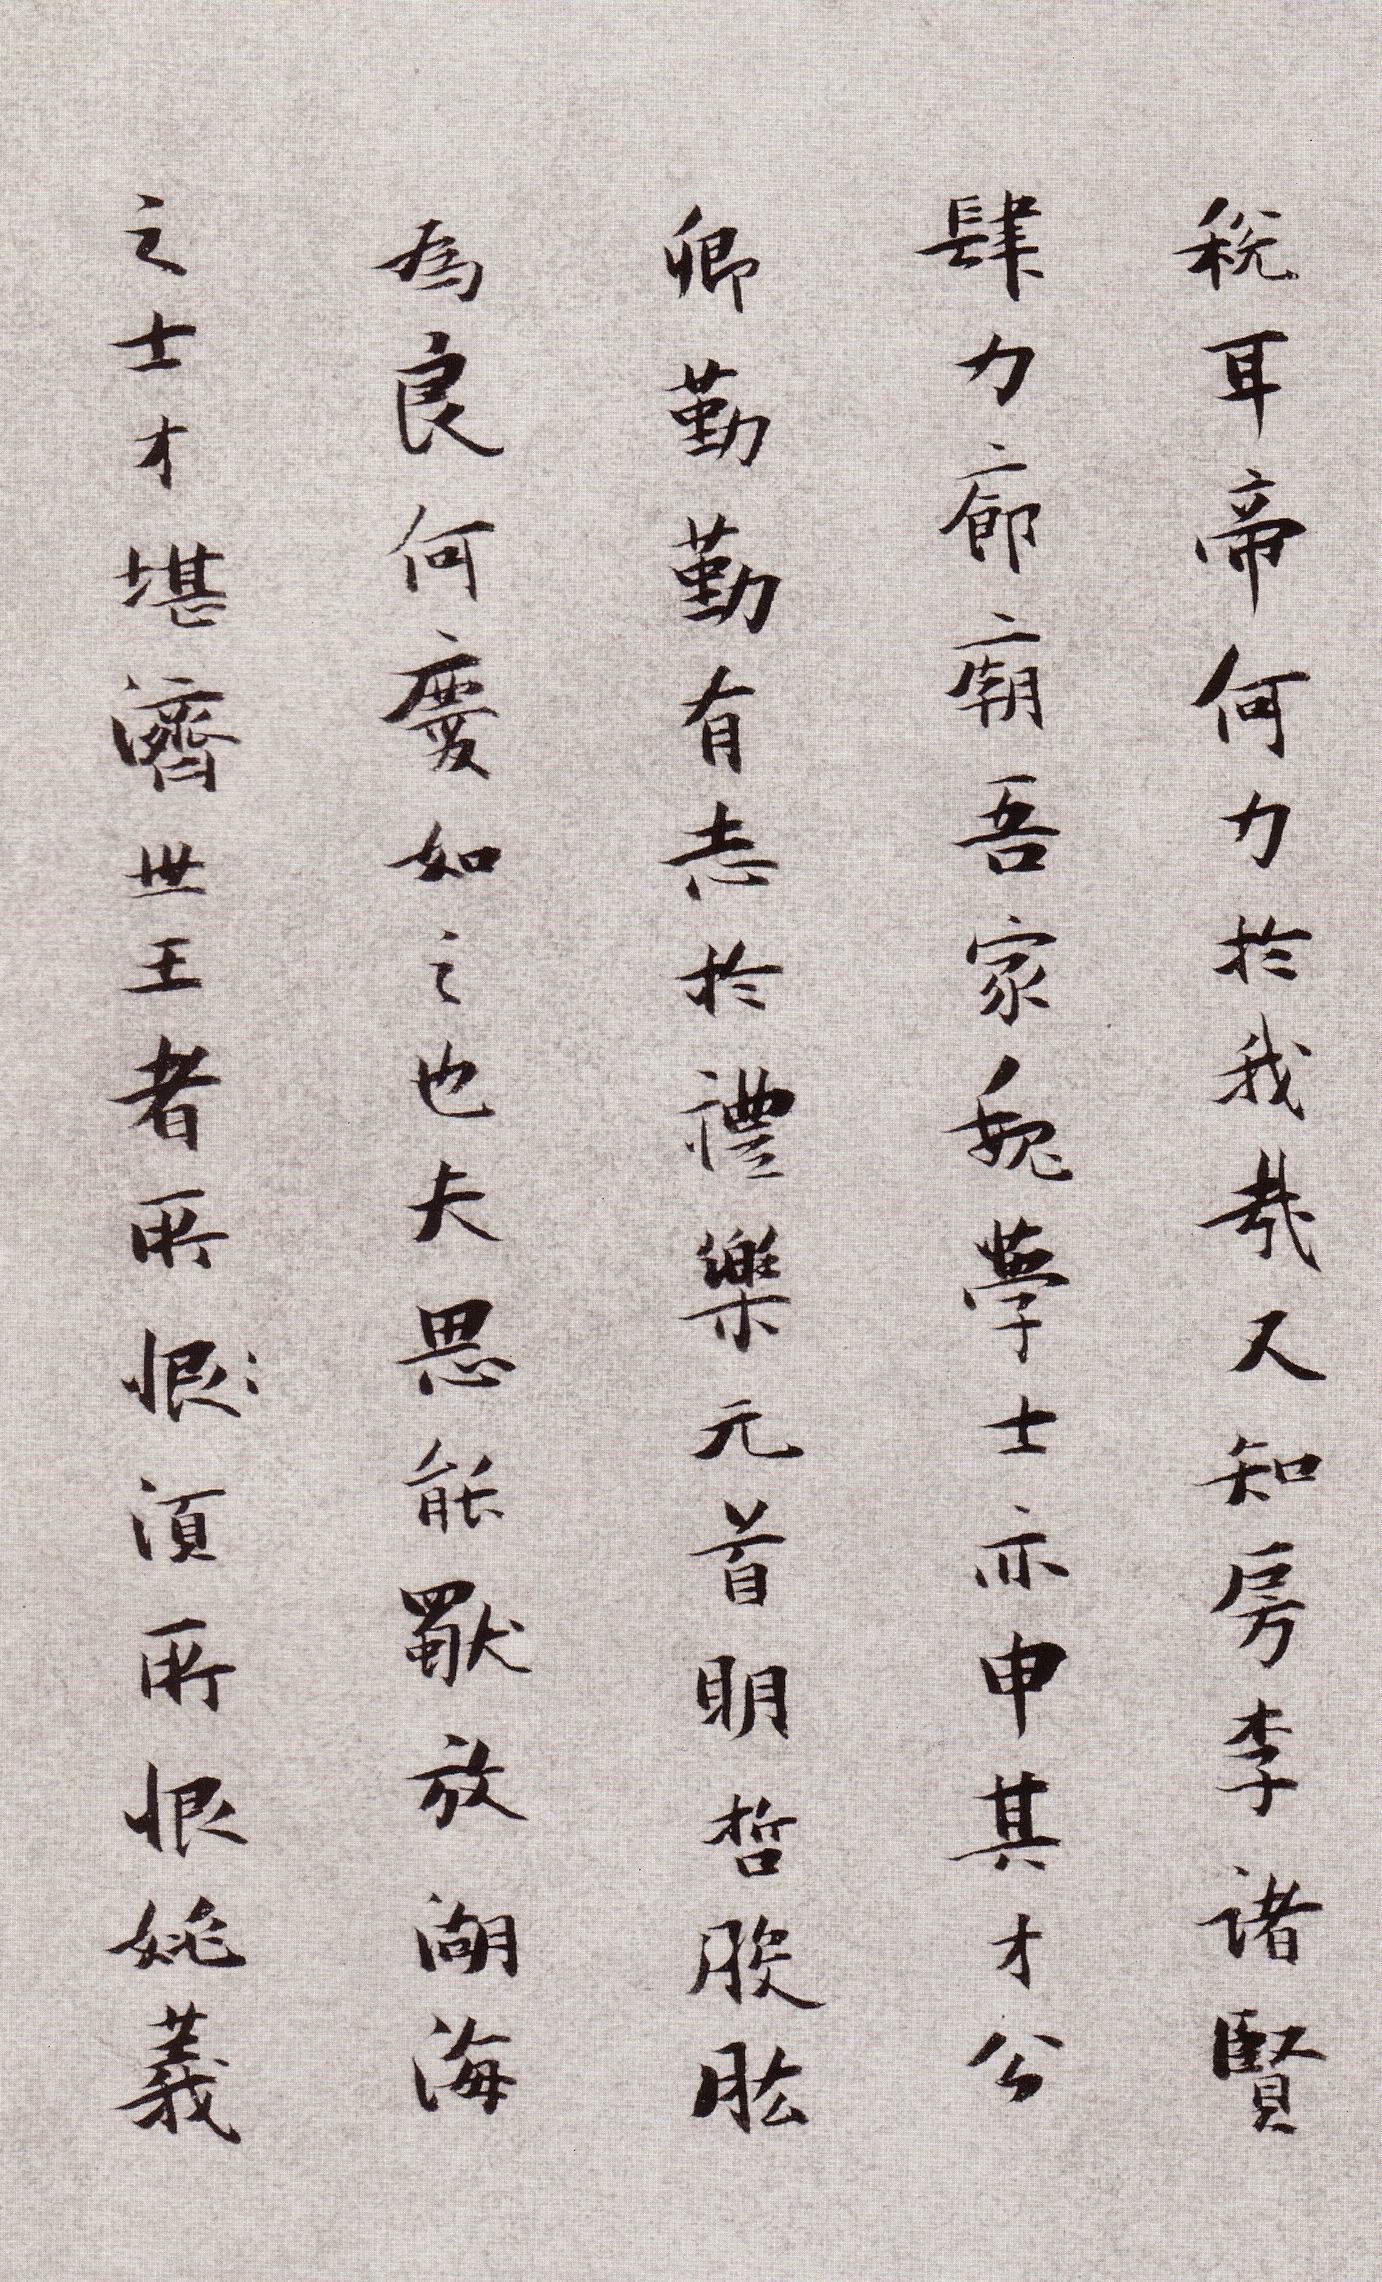 稅耳帝何力於我哉又知房李諸賢
肆力廊廟吾家魏學士亦申其才公
卿勤勤有志於禮樂元首明哲股肱
為良何慶如之也夫思能獸放湖海
之士才堪濟世王者所恨〻須所恨姚義